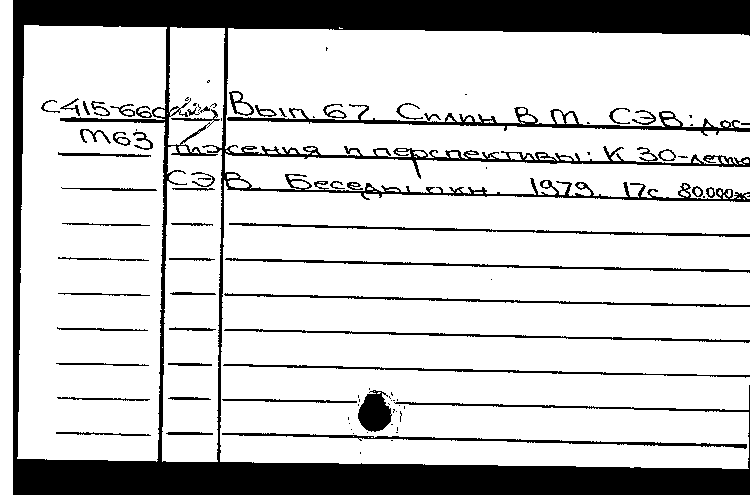 С415-660 Вып. 67. Силин, В.М. СЭВ: дос-
М63 тижения и перспективы: К 30-летию
СЭВ. Беседы о кн. 1979. 17с. 80.000экз